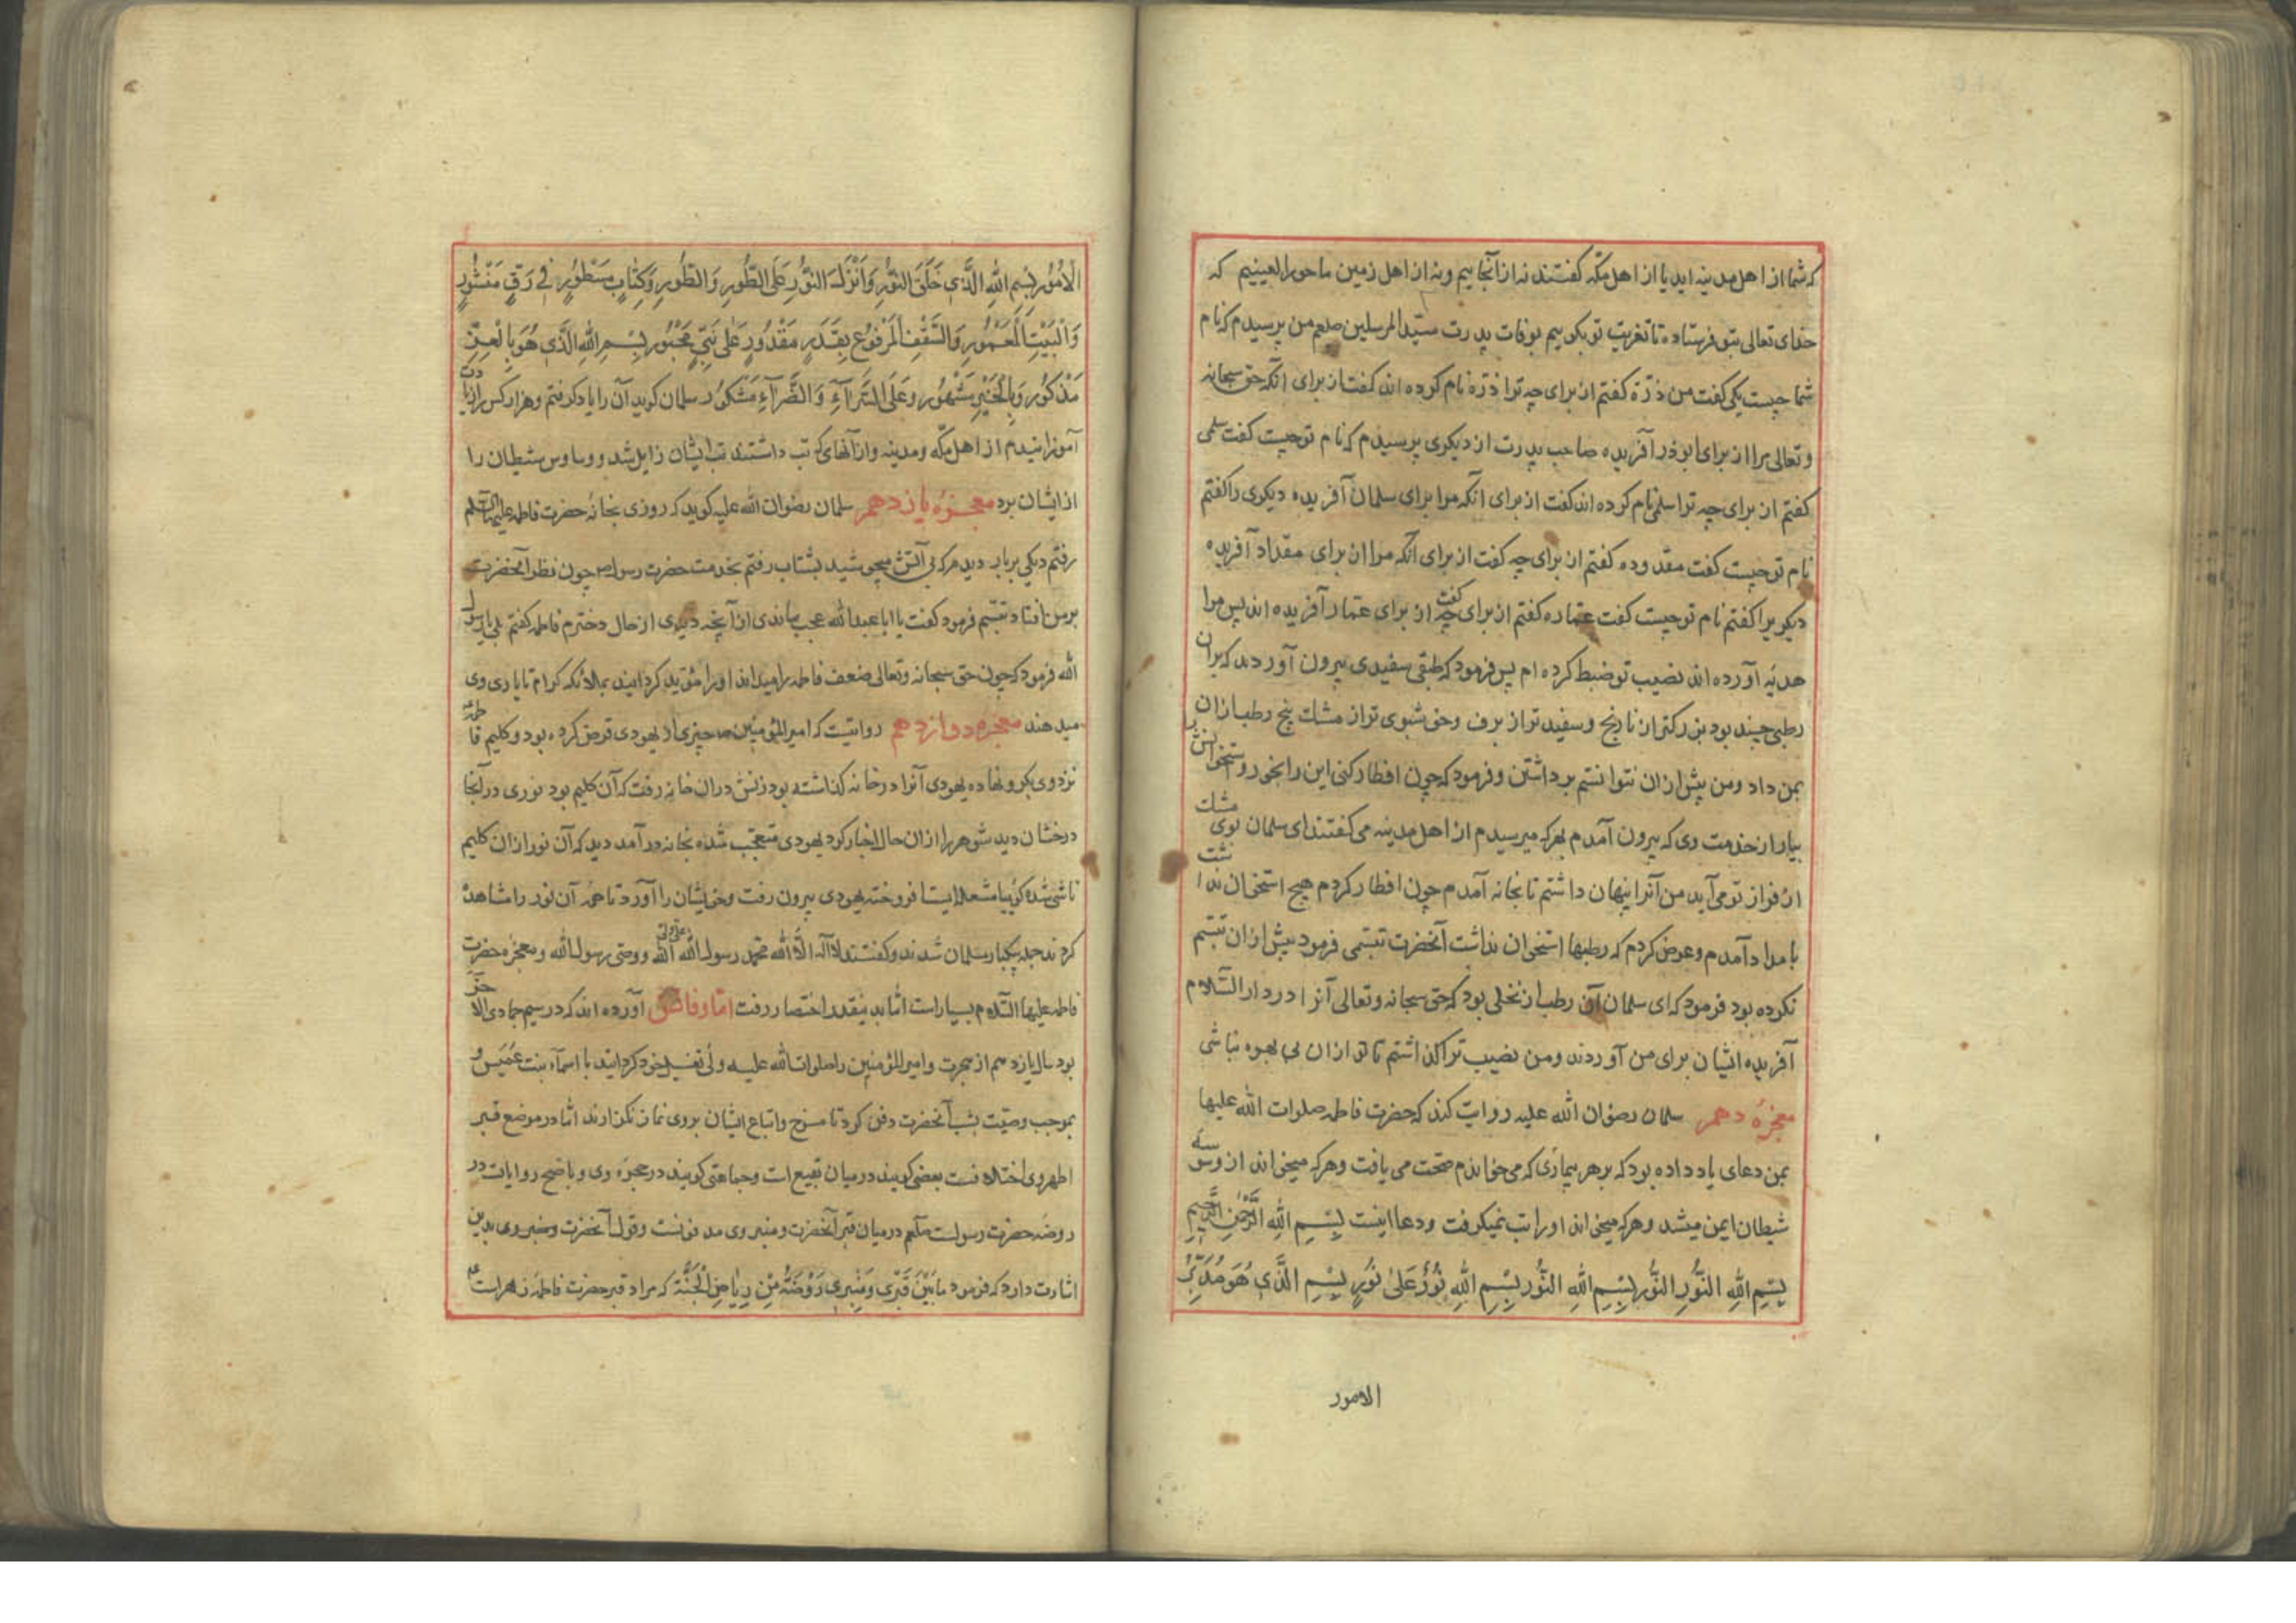 که شما از اهل مدینه اید یا از اهل مکّه کفتند نه از آنجاییم و نه از اهل زمین ما حورالعینیم که
خدای تعالی بتو فرستاده تا تعزیت تو بکوییم بوفات پدرت سیّد المرسلین صلعم من پرسیدم که نام
شما چیست یکی کفت من ذرّة کفتم از برای چه ترا ذرّه نام کرده اند کفت از برای انکه حق سبحانه
و تعالی مرا از برای ابوذر آفریده صاحب پدرت از دیکری پرسیدم که نام تو چیست کفت سلمی
کفتم از برای چه ترا سلمی نام کرده اند کفت از برای انکه مرا برای سلمان آفریده دیکری را کفتم
نام تو چیست کفت مقدوده کفتم از برای چه کفت از برای آنکه مرا از برای مقداد آفریده
دیکریرا کفتم نام تو چیست کفت عماره کفتم از برای چه کفت از برای عمار آفریده اند پس مرا
هدیّه آورده اند نصیب تو ضبط کرده ام پس فرمود که طبقی سفیدی بیرون آوردند که بران
رطبی چند بود بزرکتر از نارنج و سفید تر از برف و خوشبوی تر از مشک پنج رطب ازان
بمن داد و من پیش ازان نتوانستم برداشتن و فرمود که چون افطار کنی این را بخور و استخوانش
بیار از خدمت وی که بیرون آمدم بهر که میرسیدم از اهل مدینه می کفتند ای سلمان بوی مشک
از فراز تو می آید من آنرا پنهان داشتم تا بخانه آمدم چون افطار کردم هیچ استخوان نداشت
بامداد آمدم و عرض کردم که رطبها استخوان نداشت آنحضرت تبسّمی فرمود پیش ازان تبسّم
نکرده بود فرمود که ای سلمان آن رطب از نخلی بود که حق سبحانه و تعالی آنرا در دار السّلام
آفریده ایشان برای من آوردند و من نصیب ترا کذاشتم تا تو ازان بی بهره نباشی
معجزهٔ دهم سلمان رضوان الله علیه روایت کند که حضرت فاطمه صلوات الله علیها
بمن دعای یاد داده بود که بر هر بیماری که می خواندم صحّت می یافت و هر که میخواند از وسوسه
شیطان ایمن میشد و هر که میخواند او را تب نمیکرفت و دعا اینست بِسْمِ اللهِ الرَّحْمٰنِ الرَّحِیمِ
بِسْمِ اللهِ النُّورِ النُّورِ بِسْمِ اللهِ النُّورِ بِسْمِ اللهِ نُورٌ عَلیٰ نُورٍ بِسْمِ الَّذِي هُوَ مُدَبِّرُ
الامور
الْاُمُورِ بِسْمِ اللهِ الَّذِي خَلَقَ النُّورَ وَاَنْزَلَ النُّورَ عَلَی الطُّورِ وَالطُّورِ وَكِتَابٍ مَسْطُورٍ فِي رَقٍّ مَنْشُورٍ
وَالْبَيْتِ الْمَعْمُورِ وَالسَّقْفِ الْمَرْفُوعِ بِقَدَرٍ مَقْدُورٍ عَلیٰ نَبِيٍّ مَحْبُورٍ بِسْمِ اللهِ الَّذِي هُوَ بِالْعِزِّ
مَذْكُورٌ وَبِالْخَيْرِ مَشْهُورٌ وَعَلَی السَّرَّآءِ وَالضَّرَّآءِ مَشْكُورٌ سلمان کوید آن را یاد کرفتم و هزار کس را زیادت
آموزانیدم از اهل مکّه و مدینه و از آنهای که تب داشتند تب ایشان زایل شد و وساوس شیطان را
از ایشان برد معجزهٔ یازدهم سلمان رضوان الله علیه کوید که روزی بخانهٔ حضرت فاطمه علیها السّلام
رفتم دیکی بر بار دیدم که بی آتش میجوشید بشتاب رفتم بخدمت حضرت رسول ص چون نظر آنحضرت
بر من افتاد تبسّم فرمود کفت یا ابا عبدالله عجب ماندی از آنچه دیدی از حال دخترم فاطمه کفتم بلی یا رسول
الله فرمود که چون حق سبحانه و تعالی ضعف فاطمه را میداند او را مؤیّد کردانید بملائکه کرام تا یاری وی
میدهند معجزهٔ دوازدهم روایتست که امیر المؤمنین ص چیزی از یهودی قرض کرده بود و کلیم فاطمه
نزد وی بکرو نهاده یهودی آنرا در خانه کذاشته بود زنش دران خانه رفت که آن کلیم بود نوری در آنجا
درخشان دید شوهر را از ان حال اخبار کرد یهودی متعجّب شده بخانه در آمد دید که آن نور ازان کلیم
ناشی شده کوییا مشعلهایست افروخته یهودی بیرون رفت و خویشان را آورد تا همه آن نور را مشاهده
کردند جمله بیکبار مسلمان شدند و کفتند لا اله الّا الله محمّد رسول الله علی ولی الله و وصی رسول الله و معجزهٔ حضرت
فاطمه علیها السّلام بسیار است امّا بدینقدر اختصار رفت امّا وفاتش آورده اند که در سیم جمادی الآخر
بود سال یازدهم از هجرت و امیر المؤمنین را صلوات الله علیه ولی تغسیل خود کردانید با اسمآء بنت عُمَیس و
بموجب وصیّت بشب آنحضرت دفن کرد تا و اتباع ایشان بر وی نماز نکزارند امّا در موضع قبر
اطهر وی اختلافست بعضی کویند در میان بقیع است و جماعتی کویند در حجرهٔ وی و باصحّ روایات در
روضه حضرت رسولست صلعم در میان قبر آنحضرت و منبر وی مدفونست و قول آنحضرت و منبر وی بدین
اشارت دارد که فرمود مَا بَيْنَ قَبْرِي وَمِنْبَرِي رَوْضَةٌ مِنْ رِيَاضِ الْجَنَّةِ که مراد قبر حضرت فاطمه زهراست ع